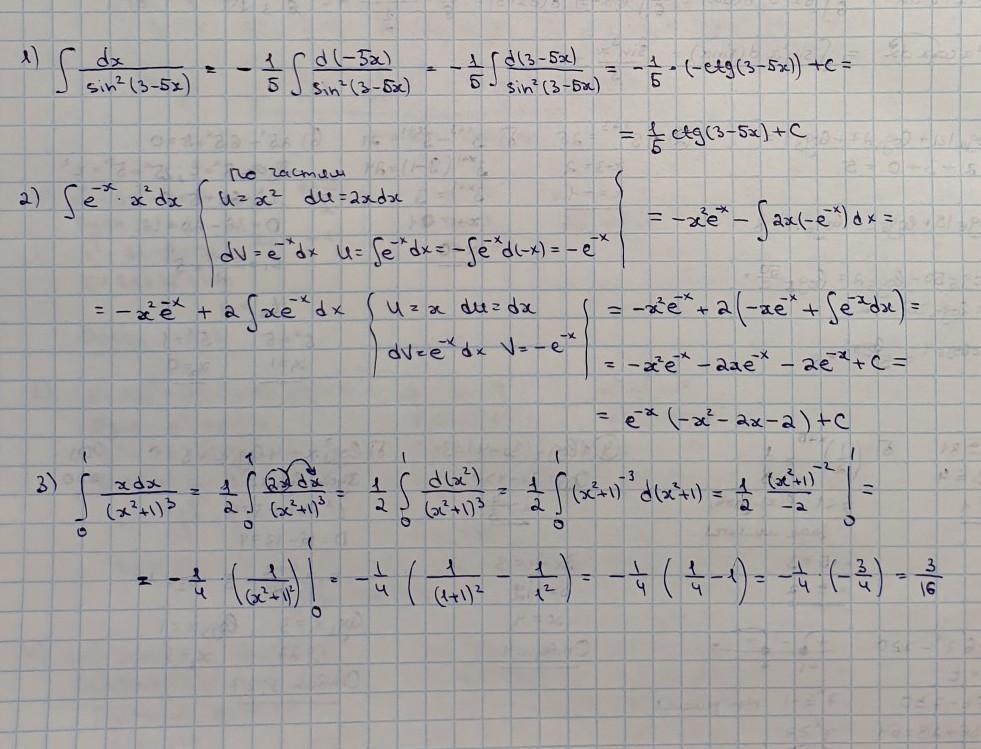 1) ∫ dx/sin²(3-5x) = -1/5 ∫ d(-5x)/sin²(3-5x) = -1/5 ∫ d(3-5x)/sin²(3-5x) = -1/5 · (-ctg(3-5x)) + C =
= 1/5 ctg(3-5x) + C
по частям
2) ∫ e^(-x) · x² dx { u = x² du = 2x dx
dV = e^(-x) dx U = ∫ e^(-x) dx = -∫ e^(-x) d(-x) = -e^(-x) } = -x²e^(-x) - ∫ 2x(-e^(-x)) dx =
= -x²e^(-x) + 2 ∫ xe^(-x) dx { u = x du = dx
dV = e^(-x) dx V = -e^(-x) } = -x²e^(-x) + 2(-xe^(-x) + ∫ e^(-x) dx) =
= -x²e^(-x) - 2xe^(-x) - 2e^(-x) + C =
= e^(-x) (-x² - 2x - 2) + C
3) ∫₀¹ xdx/(x²+1)³ = 1/2 ∫₀¹ 2x dx/(x²+1)³ = 1/2 ∫₀¹ d(x²)/(x²+1)³ = 1/2 ∫₀¹ (x²+1)⁻³ d(x²+1) = 1/2 (x²+1)⁻²/-2 |₀¹ =
= -1/4 · (1/(x²+1)²) |₀¹ = -1/4 (1/(1+1)² - 1/1²) = -1/4 (1/4 - 1) = -1/4 · (-3/4) = 3/16